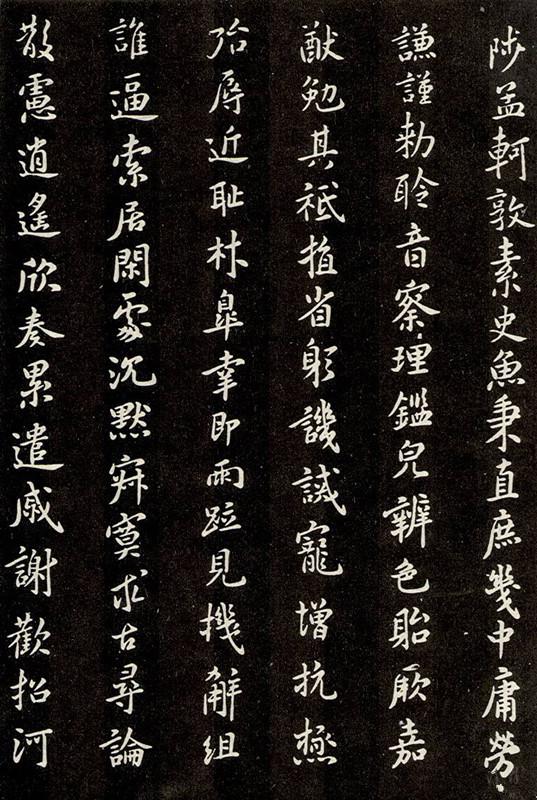 陟孟軻敦素史魚秉直庶幾中庸勞
謙謹勅聆音察理鑑皃辨色貽厥嘉
猷勉其祗植省躬譏誡寵增抗極
殆辱近耻林皐幸即兩疏見機解組
誰逼索居閑處沉默寂寞求古尋論
散慮逍遙欣奏累遣慼謝歡招河